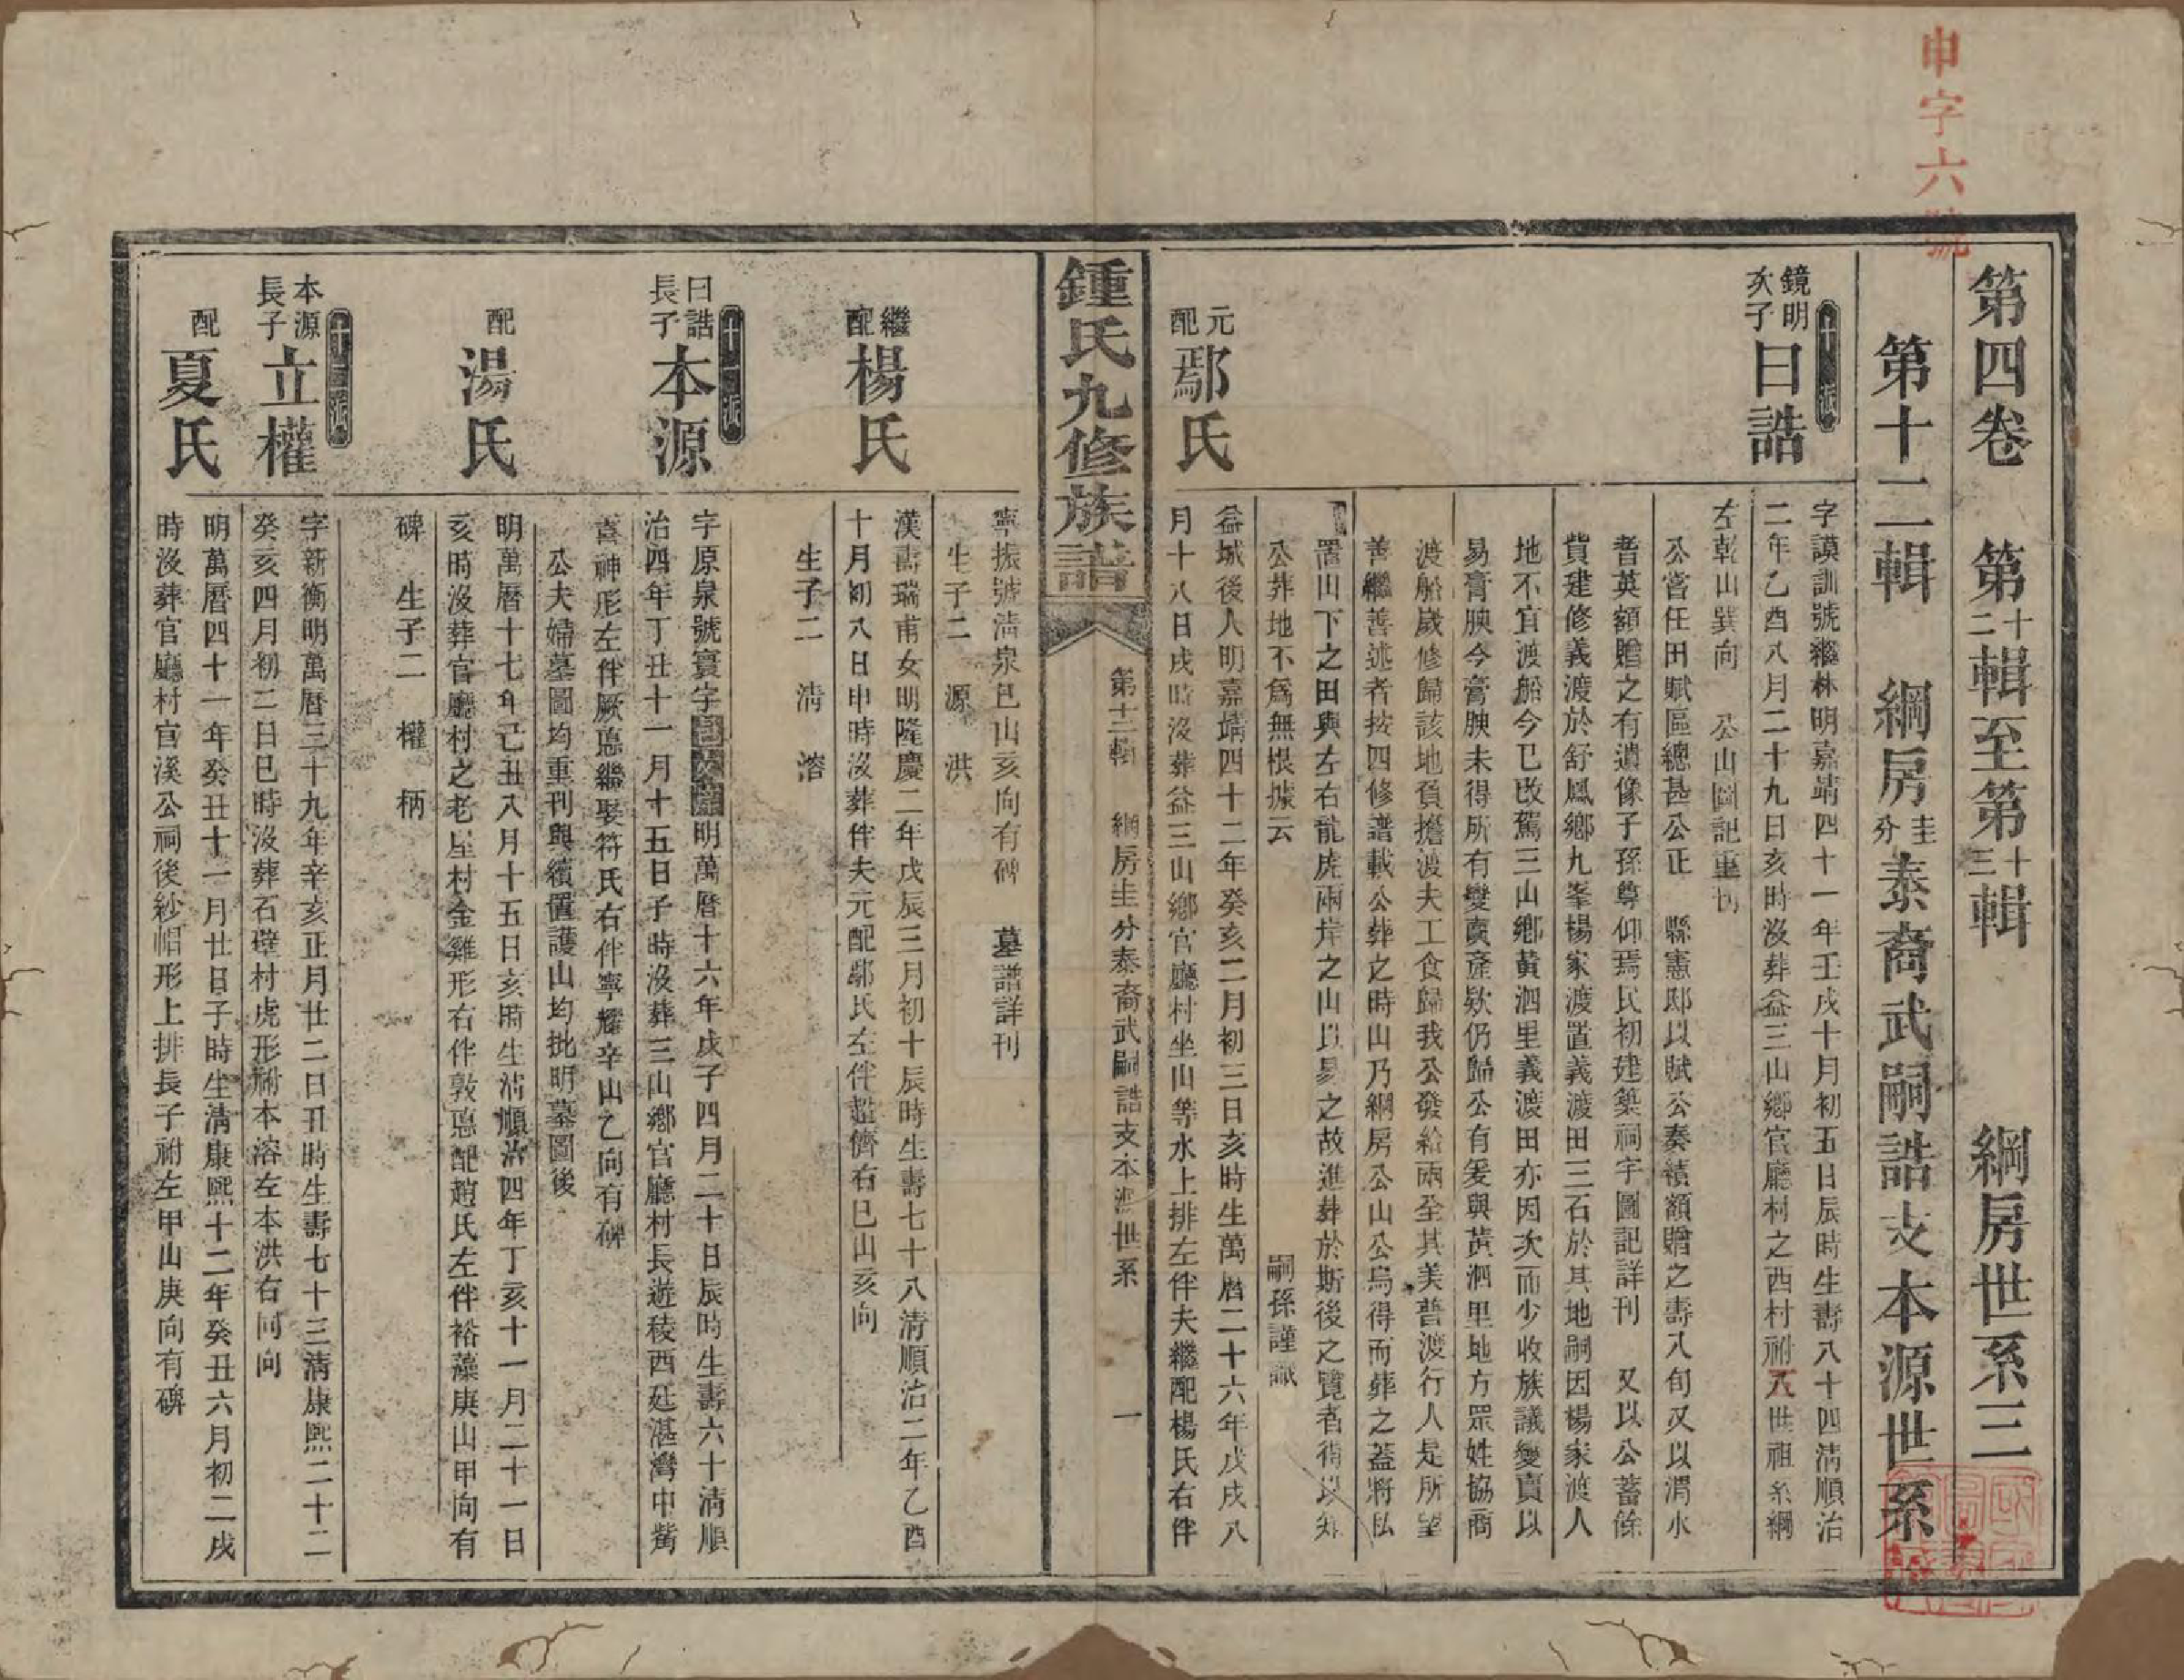 申字六號
第四卷　第十二輯至第十三輯　綱房世系三
第十二輯　綱房圭分泰裔武嗣誥支本源世系
十派
鏡明次子曰誥
字謨訓號繼林明嘉靖四十一年壬戌十月初五日辰時生壽八十四清順治
二年乙酉八月二十九日亥時沒葬益三山鄉官廳村之西村祔八世祖系綱
左乾山巽向　公山圖記重刊
公嘗任田賦區總甚公正　縣憲邸以賦公奏績額贈之壽八旬又以渭水
耆英額贈之有遺像子孫尊仰焉民初建築祠宇圖記詳刊　又以公蓄餘
貲建修義渡於舒鳳鄉九峯楊家渡置義渡田三石於其地嗣因楊家渡人
地不宜渡船今已改駕三山鄉黃泗里義渡田亦因次而少收族議變賣以
易膏腴今膏腴未得所有變賣產欵仍歸公有爰與黃泗里地方眾姓協商
渡船歲修歸該地負擔渡夫工食歸我公發給兩全其美普渡行人是所望
善繼善述者按四修譜載公葬之時山乃綱房公山公烏得而葬之蓋將私
置山下之田與左右龍虎兩岸之山以易之故進葬於斯後之覽者得以知
公葬地不爲無根據云　嗣孫謹識
元配鄢氏
益城後人明嘉靖四十二年癸亥二月初三日亥時生萬曆二十六年戊戌八
月十八日戌時沒葬益三山鄉官廳村坐山等水上排左伴夫繼配楊氏右伴
鍾氏九修族譜
第十二輯　綱房圭分泰裔武嗣誥支本源世系　一
寧振號清泉巳山亥向有碑　墓譜詳刊
生子二　源　洪
繼配楊氏
漢壽瑞甫女明隆慶二年戊辰三月初十辰時生壽七十八清順治二年乙酉
十月初八日申時沒葬伴夫元配鄢氏左伴超儕右巳山亥向
生子二　清　溶
十一派
曰誥長子本源
字原泉號寰宇邑庠生明萬曆十六年戊子四月二十日辰時生壽六十清順
治四年丁丑十一月十五日子時沒葬三山鄉官廳村長遊稜西延湛灣中嘴
喜神形左伴厥惪繼娶符氏右伴寧耀辛山乙向有碑
公夫婦墓圖均重刊與續置護山均批明墓圖後
配湯氏
明萬曆十七年己丑八月十五日亥時生清順治四年丁亥十一月二十一日
亥時沒葬官廳村之老屋村金雞形右伴敦惪配趙氏左伴裕藻庚山甲向有
碑　生子二　權　柄
十二派
本源長子立權
字新衡明萬曆三十九年辛亥正月廿二日丑時生壽七十三清康熙二十二
癸亥四月初二日巳時沒葬石壁村虎形祔本溶左本洪右同向
配夏氏
明萬曆四十一年癸丑十一月廿日子時生清康熙十二年癸丑六月初二戌
時沒葬官廳村官溪公祠後紗帽形上排長子祔左甲山庚向有碑